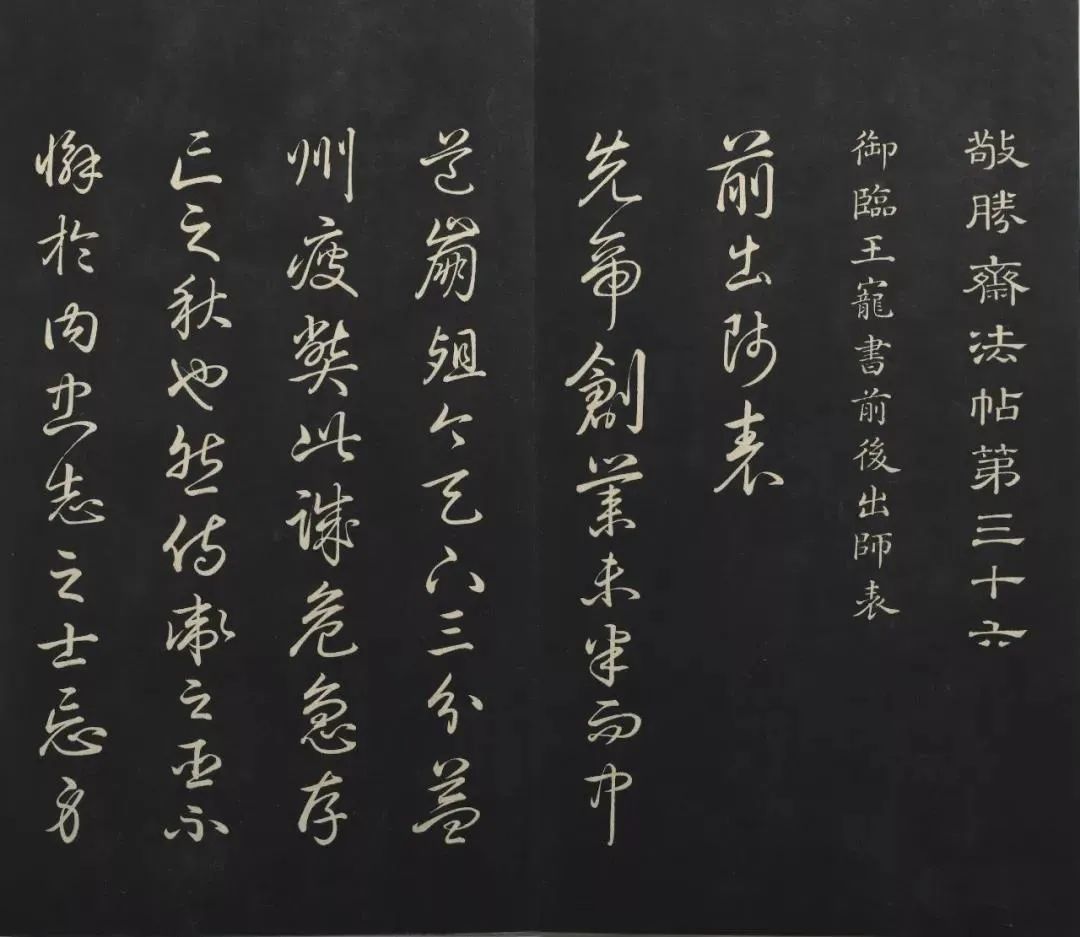 敬勝齋法帖第三十六
御臨王寵書前後出師表
前出師表
先帝創業未半而中
道崩殂今天下三分益
州疲弊此誠危急存
亡之秋也然侍衛之臣不
懈於内忠志之士忘身